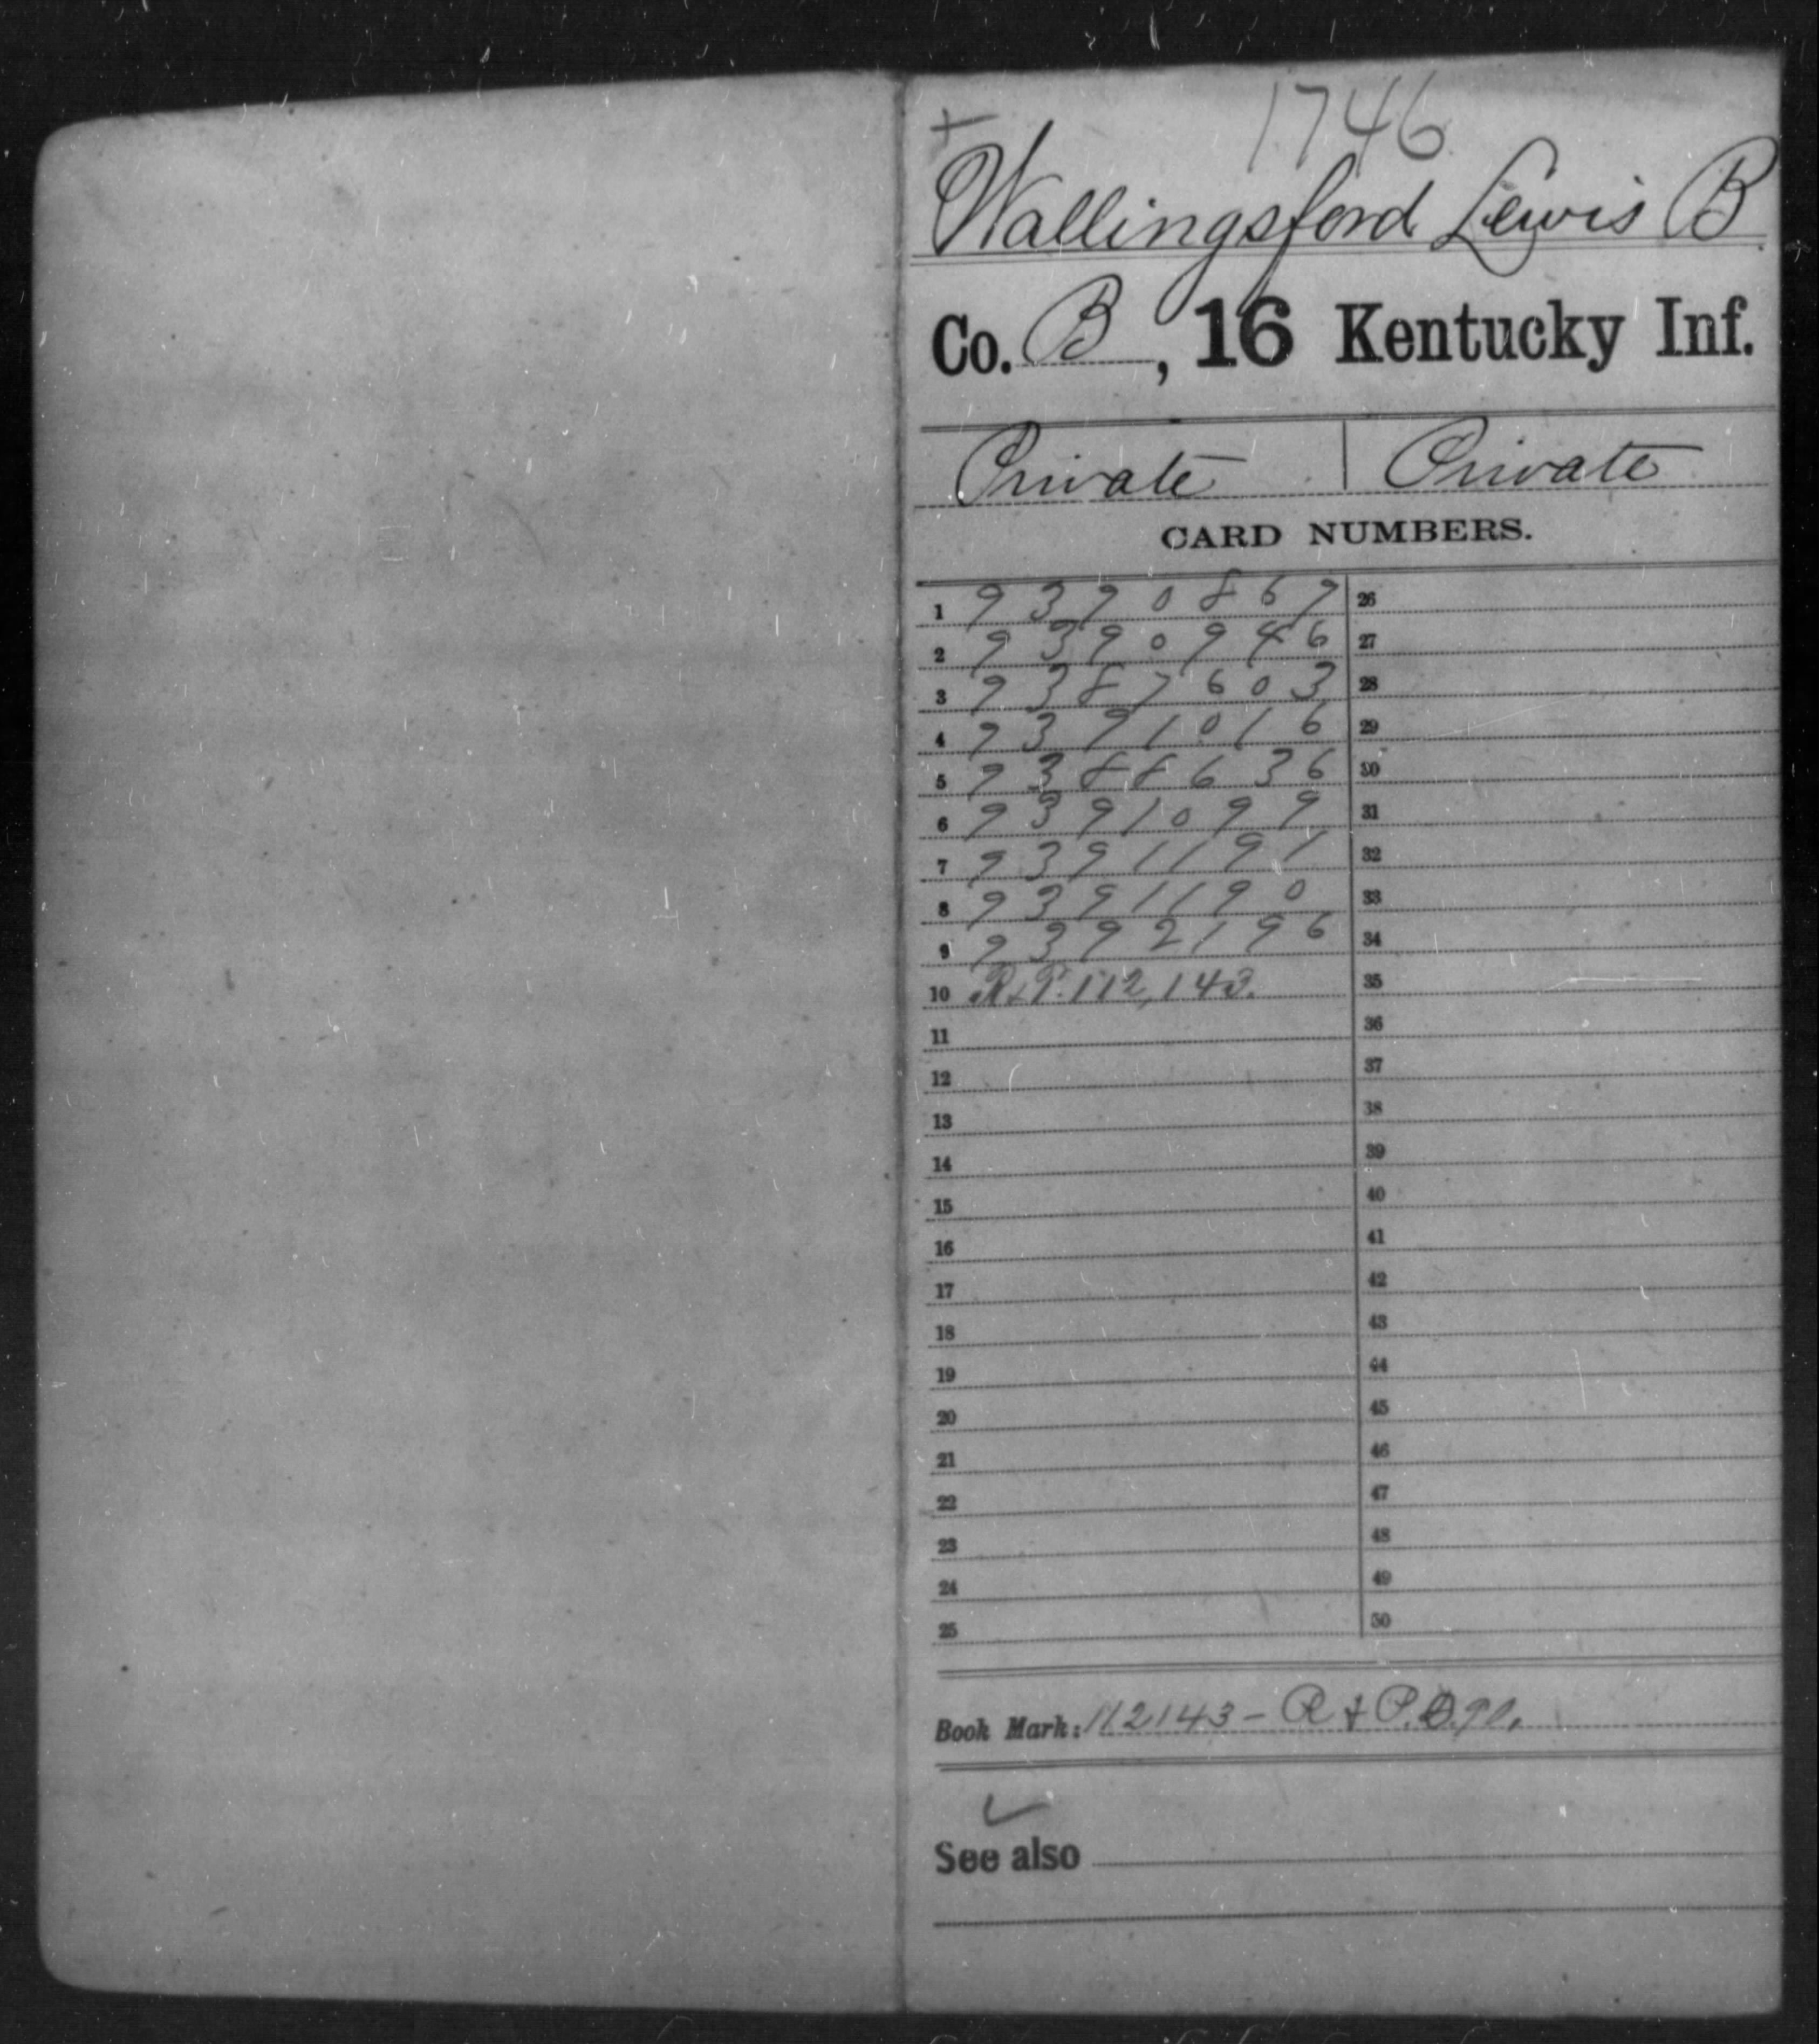 + 1746
Wallingsford Lewis B.
Co. B, 16 Kentucky Inf.
Private Private
CARD NUMBERS.
1 9390869 26
2 9390946 27
3 9387603 28
4 9391016 29
5 9388636 30
6 9391099 31
7 9391191 32
8 9391190 33
9 9392196 34
10 R&P. 112,143. 35
11 36
12 37
13 38
14 39
15 40
16 41
17 42
18 43
19 44
20 45
21 46
22 47
23 48
24 49
25 50
Book Mark: 112143 - R & P.
✓
See also